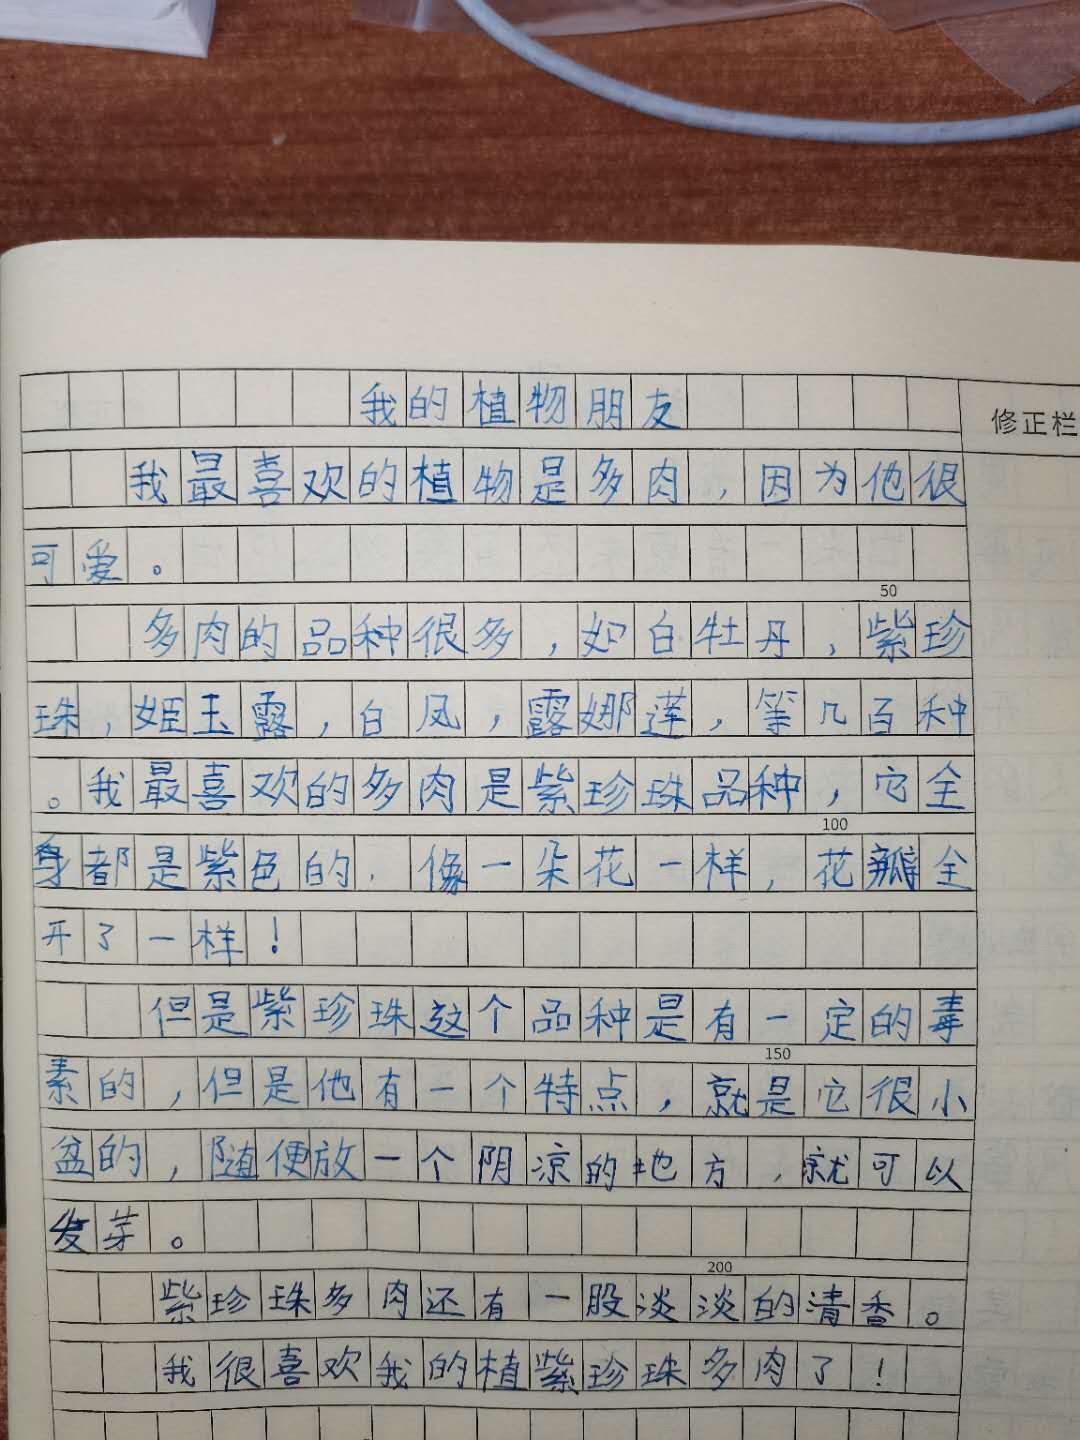 我的植物朋友
修正栏
我最喜欢的植物是多肉，因为他很
可爱。
50
多肉的品种很多，如白牡丹，紫珍
珠，姬玉露，白凤，露娜莲，等几百种
。我最喜欢的多肉是紫珍珠品种，它全
100
身都是紫色的，像一朵花一样，花瓣全
开了一样！
但是紫珍珠这个品种是有一定的毒
150
素的，但是他有一个特点，就是它很小
盆的，随便放一个阴凉的地方，就可以
发芽。
200
紫珍珠多肉还有一股淡淡的清香。
我很喜欢我的植紫珍珠多肉了！